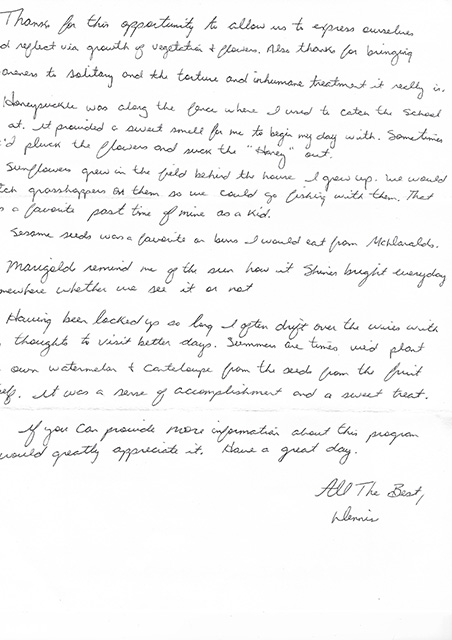 Thanks for this opportunity to allow us to express ourselves
d reflect via growth of vegetation & flowers. Also thanks for bringing
areness to solitary and the torture and inhumane treatment it really is.
Honeysuckle was along the fence where I used to catch the school
at. it provided a sweet smell for me to begin my day with. Sometimes
'd pluck the flowers and suck the "Honey" out.
Sunflowers grew in the field behind the house I grew up. We would
tch grasshoppers on them so we could go fishing with them. That
s a favorite past time of mine as a kid.
Sesame seeds was a favorite on buns I would eat from McDonalds.
Marigold remind me of the sun how it shines bright everyday
mewhere whether we see it or not
Having been locked up so long I often drift over the wires with
thoughts to visit better days. Summers are times we'd plant
own watermelon & canteloupe from the seeds from the fruit
self. it was a sense of accomplishment and a sweet treat.
If you can provide more information about this program
would greatly appreciate it. Have a great day.
All The Best,
Dennis